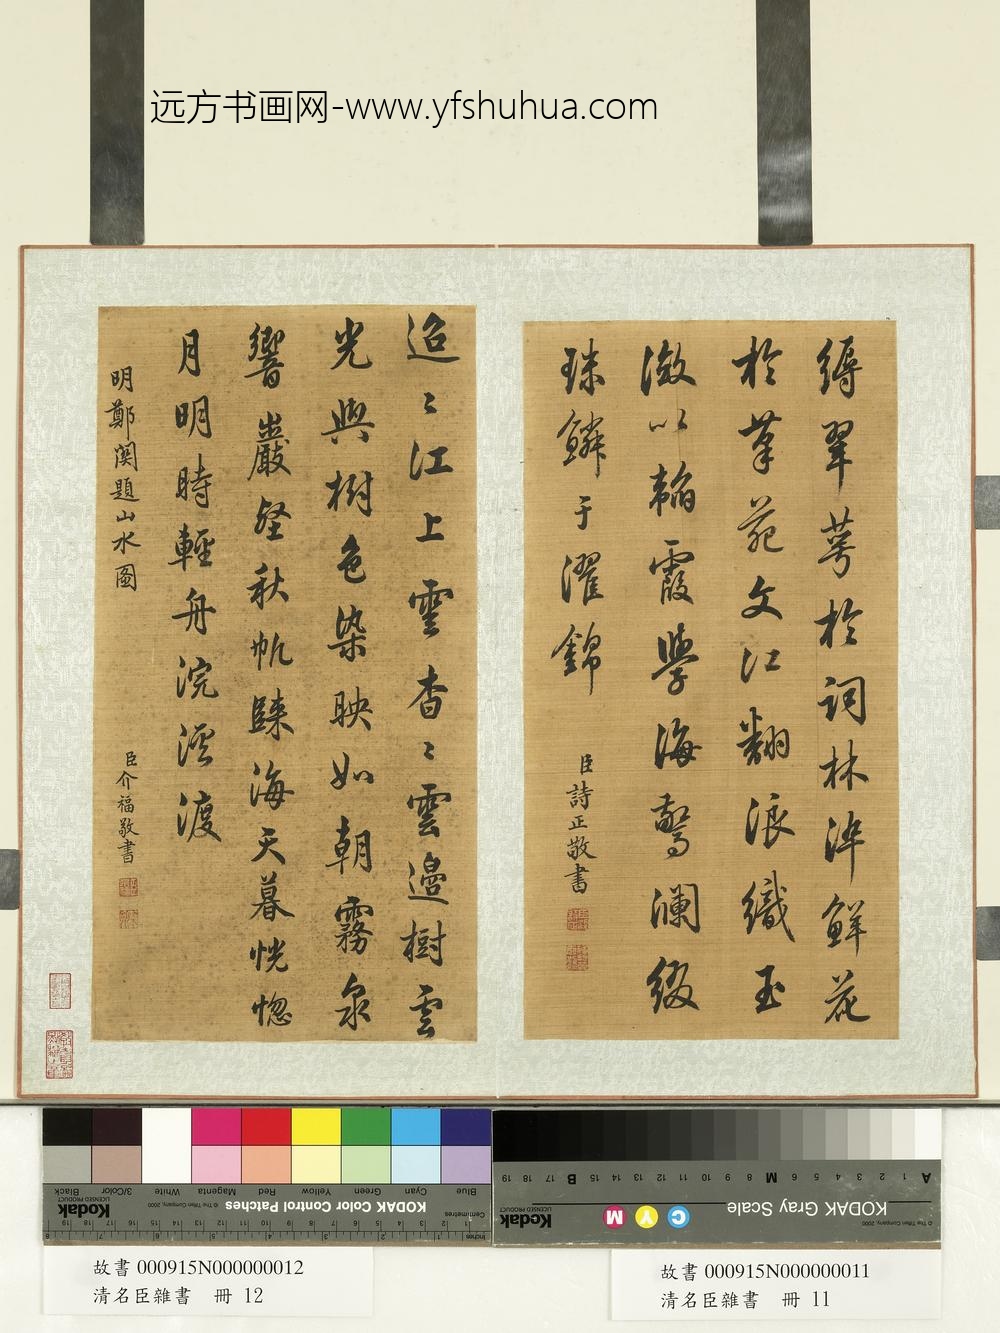 远方书画网-www.yfshuhua.com
縟翠萼於詞林泮鮮花
於筆苑文江翻浪織玉
潋以韜霞學海驚瀾綴
珠鱗于濯錦
臣詩正敬書
迢〻江上雲杳〻雲邊樹雲
光與樹色染映如朝霧泉
響巖壑秋帆歸海天暮恍惚
月明時輕舟浣溪渡
明鄭關題山水圖
臣介福敬書
Blue
Cyan
Green
Yellow
Red
Magenta
White
3/Color
Black
KODAK Color Control Patches
© The Tiffen Company, 2000
Kodak
LICENSED PRODUCT
Centimetres
Inches
A 1 2 3 4 5 6 M 8 9 10 11 12 13 14 15 B 17 18 19
KODAK Gray Scale
C Y M
Kodak
LICENSED PRODUCT
© The Tiffen Company, 2000
故書 000915N000000012
清名臣雜書 冊 12
故書 000915N000000011
清名臣雜書 冊 11